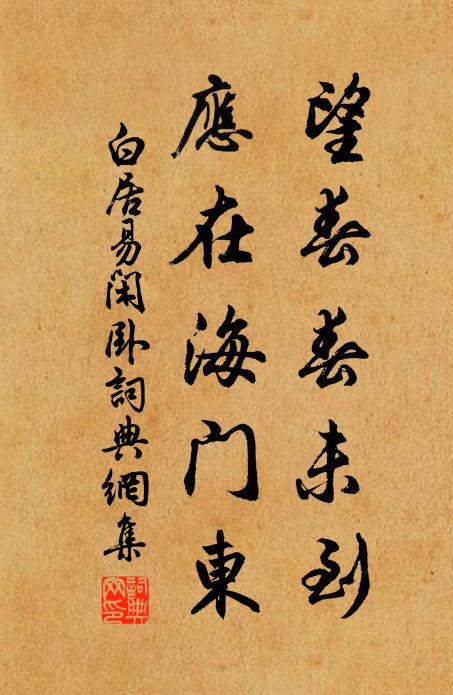 望春春未到
應在海门東
白居易閑卧詞典網集
詞典网印